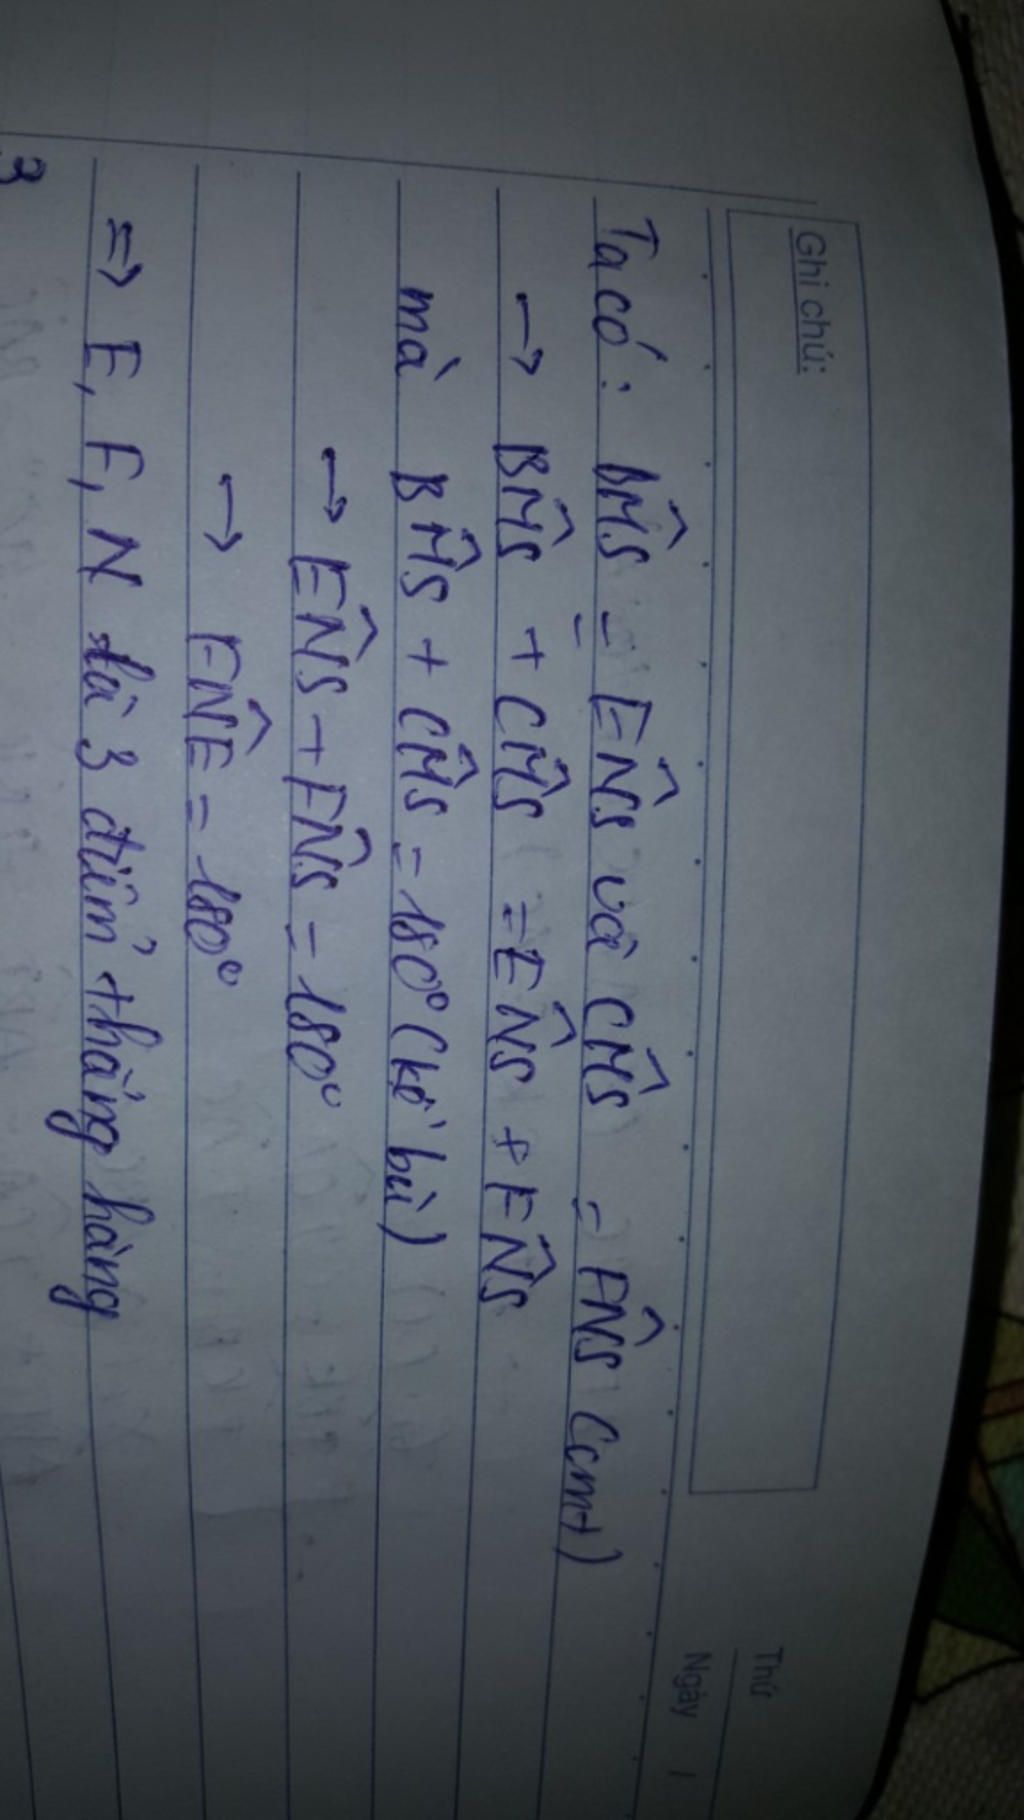 Thứ
Ngày /
Ghi chú:
Ta có: BM̂S = EN̂S và CM̂S = FN̂S (cmt)
→ BM̂S + CM̂S = EN̂S + FN̂S
mà BM̂S + CM̂S = 180° (kề bù)
→ EN̂S + FN̂S = 180°
→ FN̂E = 180°
=> E, F, N là 3 điểm thẳng hàng
3